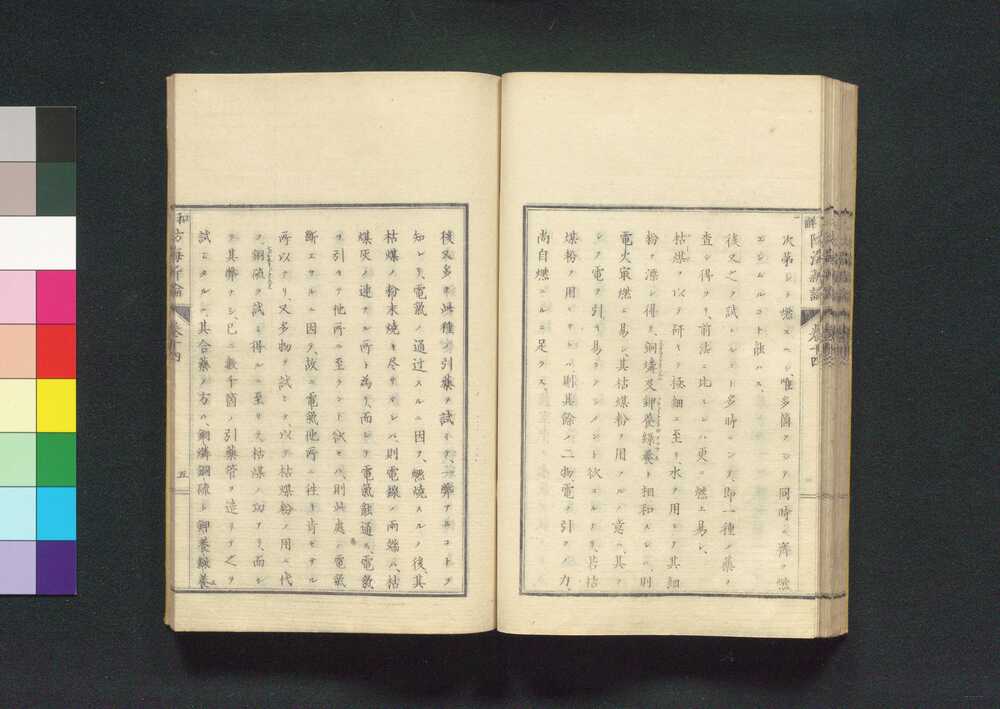 次第シテ燃エヘシ、唯多箇ヲシテ同時ニ齊ク燃
エシムルコト能ハス、
後又之ヲ試ムルコト多時ニシテ、即一種ノ藥ノ
査シ得ヲリ、前法ニ比スレハ更ニ燃エ易シ、
枯煤ヲ以テ研キテ極細ニ至リ、水ヲ用ヒテ其細
粉ヲ漂シ得テ、銅燐及鉀養綠養ト相和スレハ、則
電火最燃エ易シ、其枯煤粉ヲ用フルノ意ハ、其ヲ
シテ電ヲ引キ易カラシメント欲スルナリ、若枯
煤粉ヲ用ヒサレハ、則其餘ノ二物電ヲ引クノ力、
尚自燃エシムルニ足ラス、
後又多ク此種ノ引藥ヲ試ミテ、一弊アルコトヲ
知レリ、電氣ノ通過スルニ因テ、燃燒スルノ後、其
枯煤ノ粉末燒キ尽サヽレハ、則電線ノ兩端ハ、枯
煤灰ノ連ナル所ト為リ、而シテ電氣能通ス、電氣
ヲ引キテ他所ニ至ラント欲セハ、則此處ノ電氣
斷エサルニ因テ、故ニ電氣他所ニ往クヲ肯セサル
所以ナリ、又多物ヲ試ミテ、以テ枯煤粉ノ用ニ代
ヘ、銅硫ヲ試ミ得ルニ至リテ、枯煤ノ功アリ、而シ
テ其弊ナシ、已ニ數千箇ノ引藥管ヲ造リテ之ヲ
試ミタルニ、其合藥ノ方ハ、銅燐銅硫ト鉀養綠養
卷十四
五